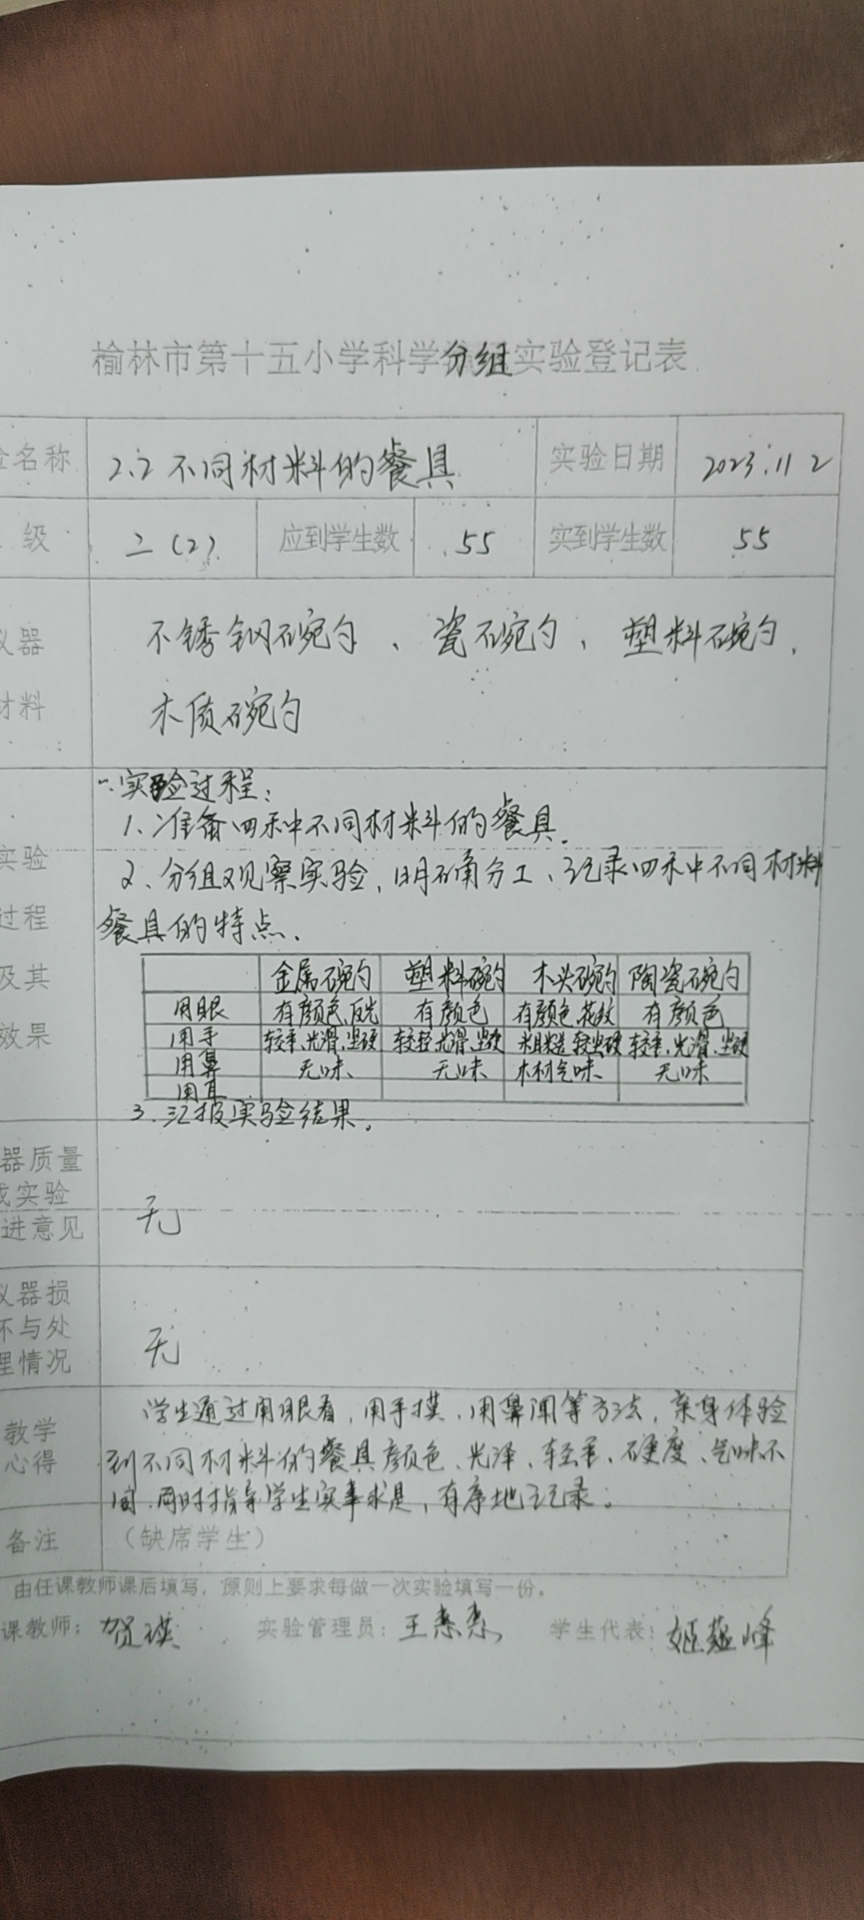 榆林市第十五小学科学分组实验登记表
名称 2.2 不同材料的餐具 实验日期 2023.11 2
级 二(2) 应到学生数 55 实到学生数 55
仪器 不锈钢碗勺、瓷碗勺、塑料碗勺、
材料 木质碗勺
一.实验过程：
1、准备四种不同材料的餐具.
实验 2、分组观察实验,明确分工、记录四种不同材料
过程 餐具的特点.
及其 金属碗勺 塑料碗勺 木头碗勺 陶瓷碗勺
用眼 有颜色、反光 有颜色 有颜色、花纹 有颜色
效果 用手 较重、光滑、坚硬 较轻、光滑、坚硬 粗糙、较坚硬 较重、光滑、坚硬
用鼻 无味 无味 木材气味 无味
用耳
3.汇报实验结果.
器质量
或实验
进意见 无
仪器损
坏与处 无
理情况
学生通过用眼看,用手摸、用鼻闻等方法,亲身体验
教学
心得 到不同材料的餐具颜色、光泽、轻重、硬度、气味不
同.同时指导学生实事求是,有序地记录。
备注 (缺席学生)
由任课教师课后填写，原则上要求每做一次实验填写一份。
课教师: 贺瑛 实验管理员: 王 学生代表: 姬蕴峰